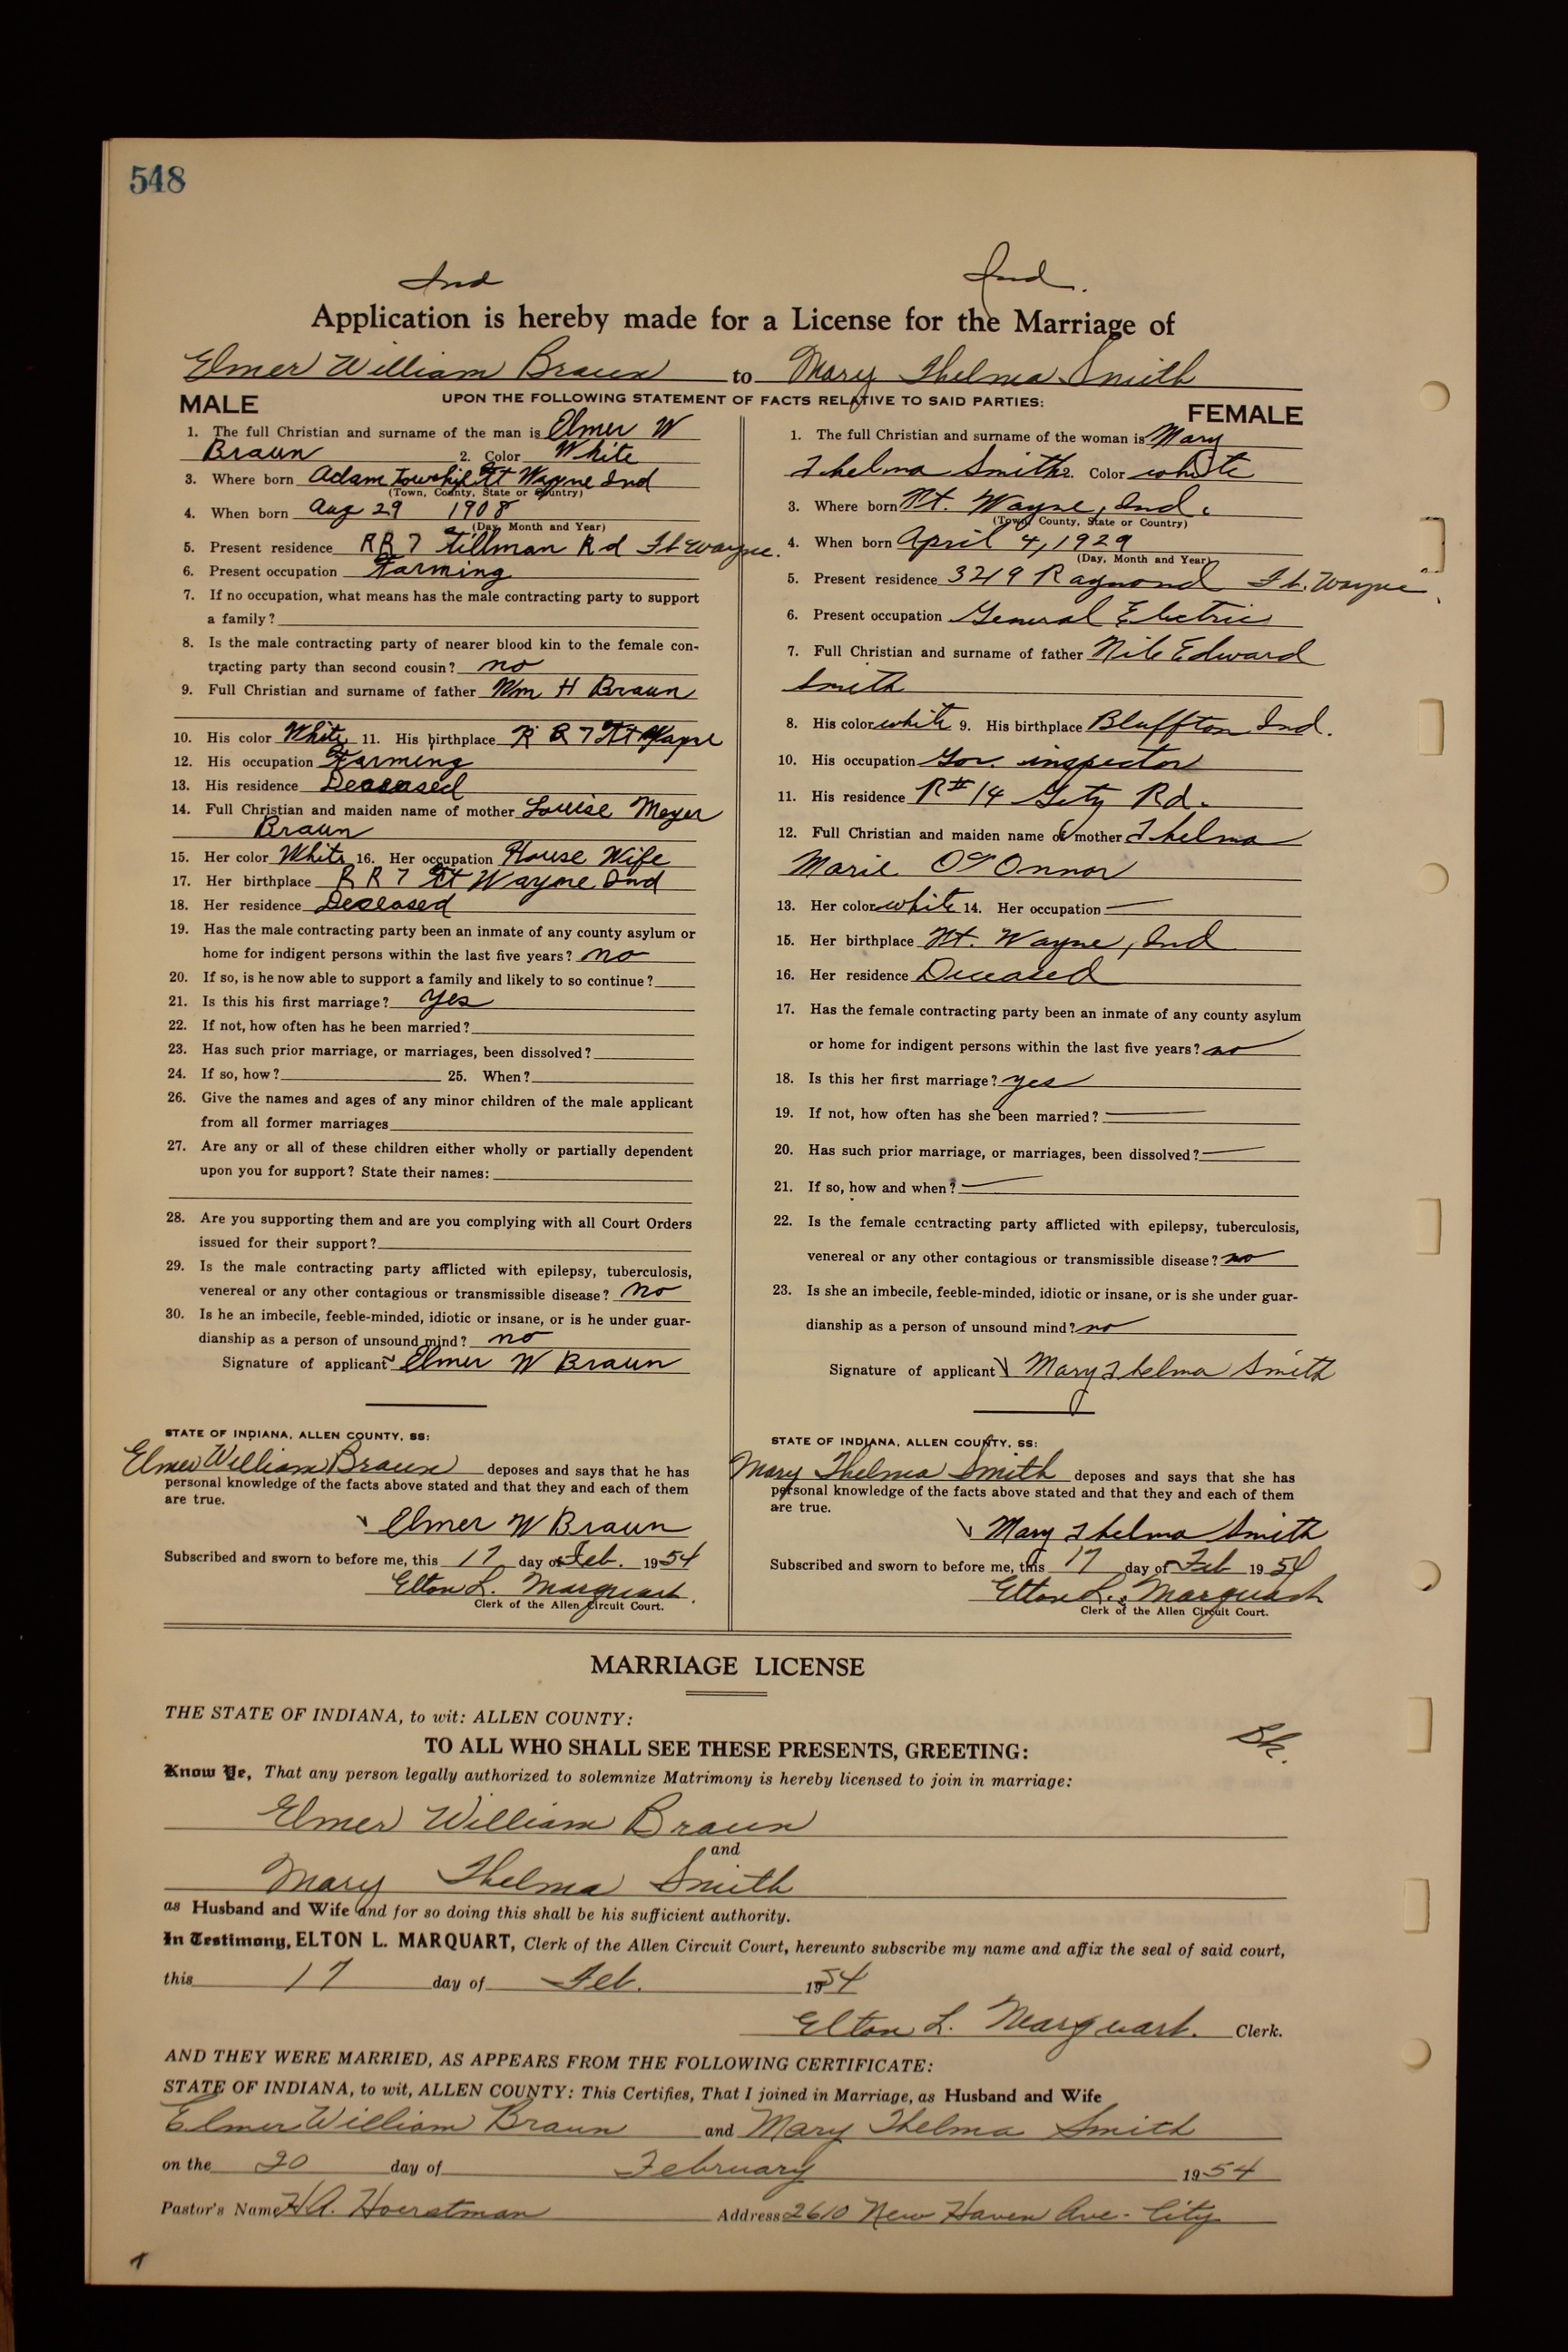 548
Ind Ind.
Application is hereby made for a License for the Marriage of
Elmer William Braun to Mary Thelma Smith
UPON THE FOLLOWING STATEMENT OF FACTS RELATIVE TO SAID PARTIES:
MALE
1. The full Christian and surname of the man is Elmer W
Braun 2. Color White
3. Where born Adam Township Ft Wayne Ind
(Town, County, State or Country)
4. When born Aug 29 1908
(Day, Month and Year)
5. Present residence RR 7 Tillman Rd Ft Wayne.
6. Present occupation Farming
7. If no occupation, what means has the male contracting party to support
a family?
8. Is the male contracting party of nearer blood kin to the female con-
tracting party than second cousin? no
9. Full Christian and surname of father Wm H Braun
10. His color White 11. His birthplace R R 7 Ft Wayne
12. His occupation Farming
13. His residence Deceased
14. Full Christian and maiden name of mother Louise Meyer
Braun
15. Her color White 16. Her occupation House Wife
17. Her birthplace R R 7 Ft Wayne Ind
18. Her residence Deceased
19. Has the male contracting party been an inmate of any county asylum or
home for indigent persons within the last five years? no
20. If so, is he now able to support a family and likely to so continue?
21. Is this his first marriage? Yes
22. If not, how often has he been married?
23. Has such prior marriage, or marriages, been dissolved?
24. If so, how? 25. When?
26. Give the names and ages of any minor children of the male applicant
from all former marriages
27. Are any or all of these children either wholly or partially dependent
upon you for support? State their names:
28. Are you supporting them and are you complying with all Court Orders
issued for their support?
29. Is the male contracting party afflicted with epilepsy, tuberculosis,
venereal or any other contagious or transmissible disease? no
30. Is he an imbecile, feeble-minded, idiotic or insane, or is he under guar-
dianship as a person of unsound mind? no
Signature of applicant Elmer W Braun
STATE OF INDIANA, ALLEN COUNTY, SS:
Elmer William Braun deposes and says that he has
personal knowledge of the facts above stated and that they and each of them
are true.
Elmer W Braun
Subscribed and sworn to before me, this 17 day of Feb. 1954
Elton L. Marquart.
Clerk of the Allen Circuit Court.
FEMALE
1. The full Christian and surname of the woman is Mary
Thelma Smith 2. Color white
3. Where born Ft. Wayne, Ind.
(Town, County, State or Country)
4. When born April 4, 1929
(Day, Month and Year)
5. Present residence 3219 Raymond Ft. Wayne
6. Present occupation General Electric
7. Full Christian and surname of father Nile Edward
Smith
8. His color white 9. His birthplace Bluffton Ind.
10. His occupation Gov. inspector
11. His residence R# 14 Rd.
12. Full Christian and maiden name of mother Thelma
Marie O'Connor
13. Her color white 14. Her occupation —
15. Her birthplace Ft. Wayne, Ind
16. Her residence Deceased
17. Has the female contracting party been an inmate of any county asylum
or home for indigent persons within the last five years? no
18. Is this her first marriage? yes
19. If not, how often has she been married? —
20. Has such prior marriage, or marriages, been dissolved? —
21. If so, how and when? —
22. Is the female contracting party afflicted with epilepsy, tuberculosis,
venereal or any other contagious or transmissible disease? no
23. Is she an imbecile, feeble-minded, idiotic or insane, or is she under guar-
dianship as a person of unsound mind? no
Signature of applicant Mary Thelma Smith
STATE OF INDIANA, ALLEN COUNTY, SS:
Mary Thelma Smith deposes and says that she has
personal knowledge of the facts above stated and that they and each of them
are true.
Mary Thelma Smith
Subscribed and sworn to before me, this 17 day of Feb 1954
Elton L. Marquart
Clerk of the Allen Circuit Court.
MARRIAGE LICENSE
THE STATE OF INDIANA, to wit: ALLEN COUNTY:
TO ALL WHO SHALL SEE THESE PRESENTS, GREETING:
Know Ye, That any person legally authorized to solemnize Matrimony is hereby licensed to join in marriage:
Elmer William Braun
and
Mary Thelma Smith
as Husband and Wife and for so doing this shall be his sufficient authority.
In Testimony, ELTON L. MARQUART, Clerk of the Allen Circuit Court, hereunto subscribe my name and affix the seal of said court,
this 17 day of Feb. 1954
Elton L. Marquart. Clerk.
AND THEY WERE MARRIED, AS APPEARS FROM THE FOLLOWING CERTIFICATE:
STATE OF INDIANA, to wit, ALLEN COUNTY: This Certifies, That I joined in Marriage, as Husband and Wife
Elmer William Braun and Mary Thelma Smith
on the 20 day of February 1954
Pastor's Name H.A. Hoerstman Address 2610 New Haven Ave - City